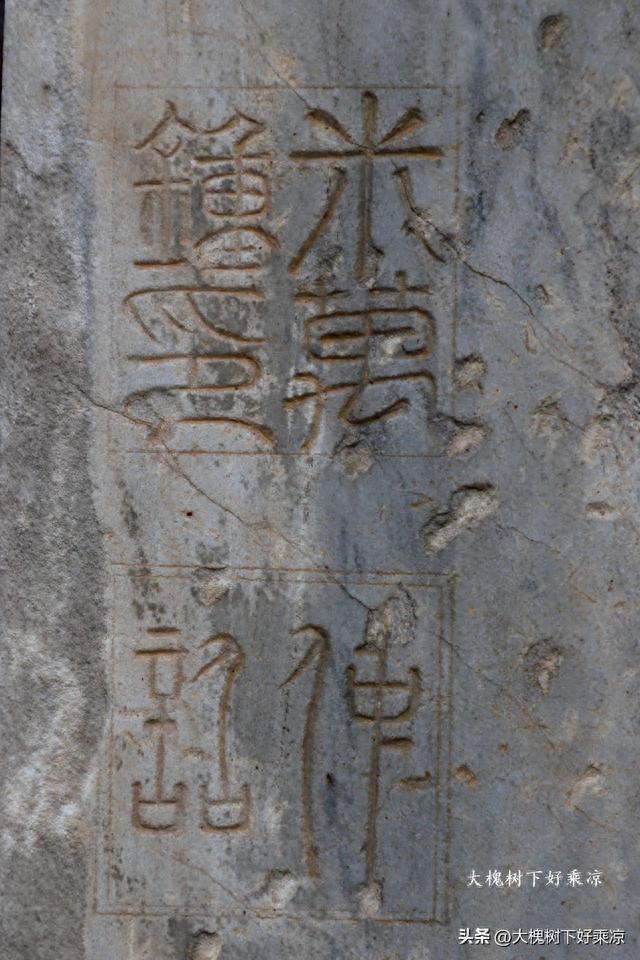 米萬
鍾印
仲
詔
大槐树下好乘凉
头条 @大槐树下好乘凉